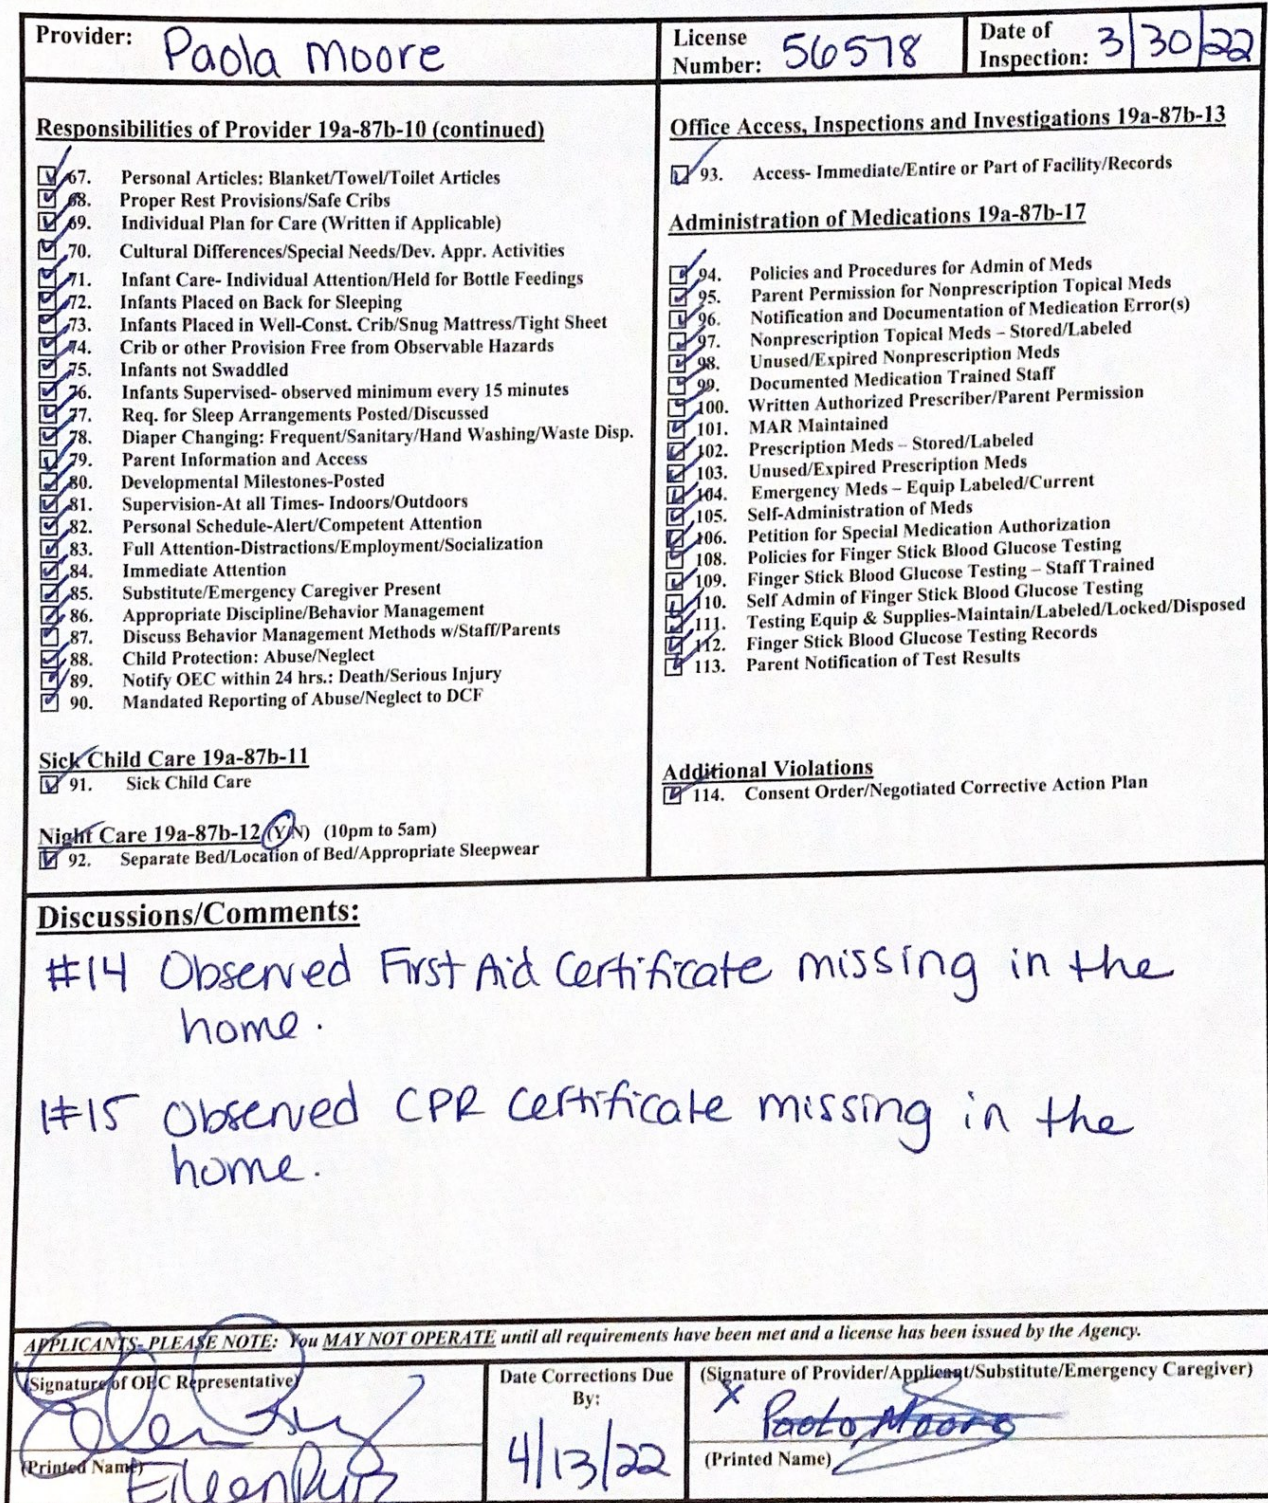 Provider: Paola Moore
License Number: 56578
Date of Inspection: 3/30/22
Responsibilities of Provider 19a-87b-10 (continued)
67. Personal Articles: Blanket/Towel/Toilet Articles
68. Proper Rest Provisions/Safe Cribs
69. Individual Plan for Care (Written if Applicable)
70. Cultural Differences/Special Needs/Dev. Appr. Activities
71. Infant Care- Individual Attention/Held for Bottle Feedings
72. Infants Placed on Back for Sleeping
73. Infants Placed in Well-Const. Crib/Snug Mattress/Tight Sheet
74. Crib or other Provision Free from Observable Hazards
75. Infants not Swaddled
76. Infants Supervised- observed minimum every 15 minutes
77. Req. for Sleep Arrangements Posted/Discussed
78. Diaper Changing: Frequent/Sanitary/Hand Washing/Waste Disp.
79. Parent Information and Access
80. Developmental Milestones-Posted
81. Supervision-At all Times- Indoors/Outdoors
82. Personal Schedule-Alert/Competent Attention
83. Full Attention-Distractions/Employment/Socialization
84. Immediate Attention
85. Substitute/Emergency Caregiver Present
86. Appropriate Discipline/Behavior Management
87. Discuss Behavior Management Methods w/Staff/Parents
88. Child Protection: Abuse/Neglect
89. Notify OEC within 24 hrs.: Death/Serious Injury
90. Mandated Reporting of Abuse/Neglect to DCF
Sick Child Care 19a-87b-11
91. Sick Child Care
Night Care 19a-87b-12 (Y/N) (10pm to 5am)
92. Separate Bed/Location of Bed/Appropriate Sleepwear
Office Access, Inspections and Investigations 19a-87b-13
93. Access- Immediate/Entire or Part of Facility/Records
Administration of Medications 19a-87b-17
94. Policies and Procedures for Admin of Meds
95. Parent Permission for Nonprescription Topical Meds
96. Notification and Documentation of Medication Error(s)
97. Nonprescription Topical Meds – Stored/Labeled
98. Unused/Expired Nonprescription Meds
99. Documented Medication Trained Staff
100. Written Authorized Prescriber/Parent Permission
101. MAR Maintained
102. Prescription Meds – Stored/Labeled
103. Unused/Expired Prescription Meds
104. Emergency Meds – Equip Labeled/Current
105. Self-Administration of Meds
106. Petition for Special Medication Authorization
108. Policies for Finger Stick Blood Glucose Testing
109. Finger Stick Blood Glucose Testing – Staff Trained
110. Self Admin of Finger Stick Blood Glucose Testing
111. Testing Equip & Supplies-Maintain/Labeled/Locked/Disposed
112. Finger Stick Blood Glucose Testing Records
113. Parent Notification of Test Results
Additional Violations
114. Consent Order/Negotiated Corrective Action Plan
Discussions/Comments:
#14 Observed First Aid Certificate missing in the
home.
#15 Observed CPR certificate missing in the
home.
APPLICANTS- PLEASE NOTE: You MAY NOT OPERATE until all requirements have been met and a license has been issued by the Agency.
(Signature of OEC Representative)
(Printed Name) Eileen
Date Corrections Due
By:
4/13/22
(Signature of Provider/Applicant/Substitute/Emergency Caregiver)
X Paola Moore
(Printed Name)